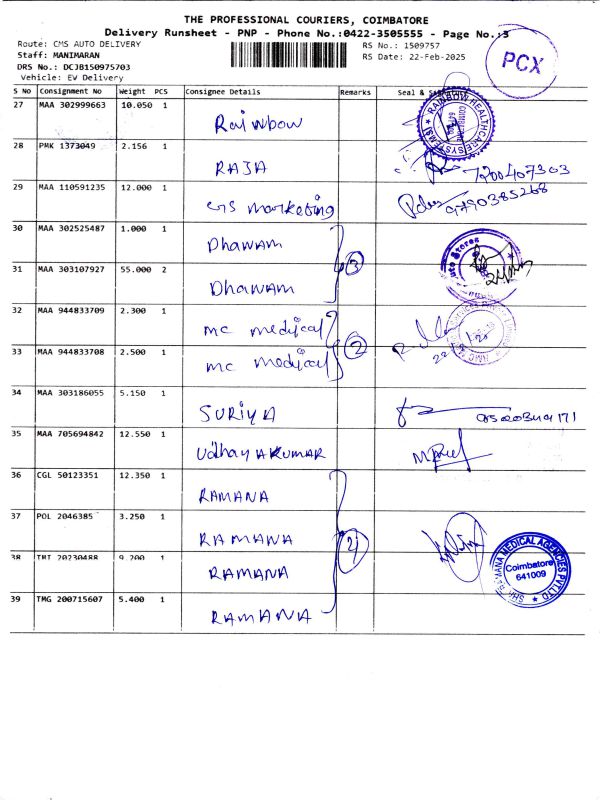 THE PROFESSIONAL COURIERS, COIMBATORE
Delivery Runsheet - PNP - Phone No.:0422-3505555 - Page No.:3
Route: CMS AUTO DELIVERY
RS No.: 1509757
Staff: MANIMARAN
RS Date: 22-Feb-2025
DRS No.: DCJB150975703
Vehicle: EW Delivery
PCX
S No Consignment No Weight PCS Consignee Details Remarks Seal &
27 MAA 302999663 10.050 1 Rainbow
RAINBOW HEALTHCARE SYSTEMS
28 PMK 1373049 2.156 1 RAJA 7200407303
29 MAA 110591235 12.000 1 GS marketing 9790385268
30 MAA 302525487 1.000 1 DHAWAM
31 MAA 303107927 55.000 2 DHAWAM
3
32 MAA 944833709 2.300 1 mc medical
33 MAA 944833708 2.500 1 mc medical
2
34 MAA 303186055 5.150 1 SURIYA
35 MAA 705694842 12.550 1 UdhayAKUMAR
36 CGL 50123351 12.350 1 RAMANA
37 POL 2046385 3.250 1 RAMANA
38 20230488 9.200 1 RAMANA
39 TMG 200715607 5.400 1 RAMANA
SHRI RAMANA MEDICAL AGENCIES PVT LTD
Coimbatore
641009